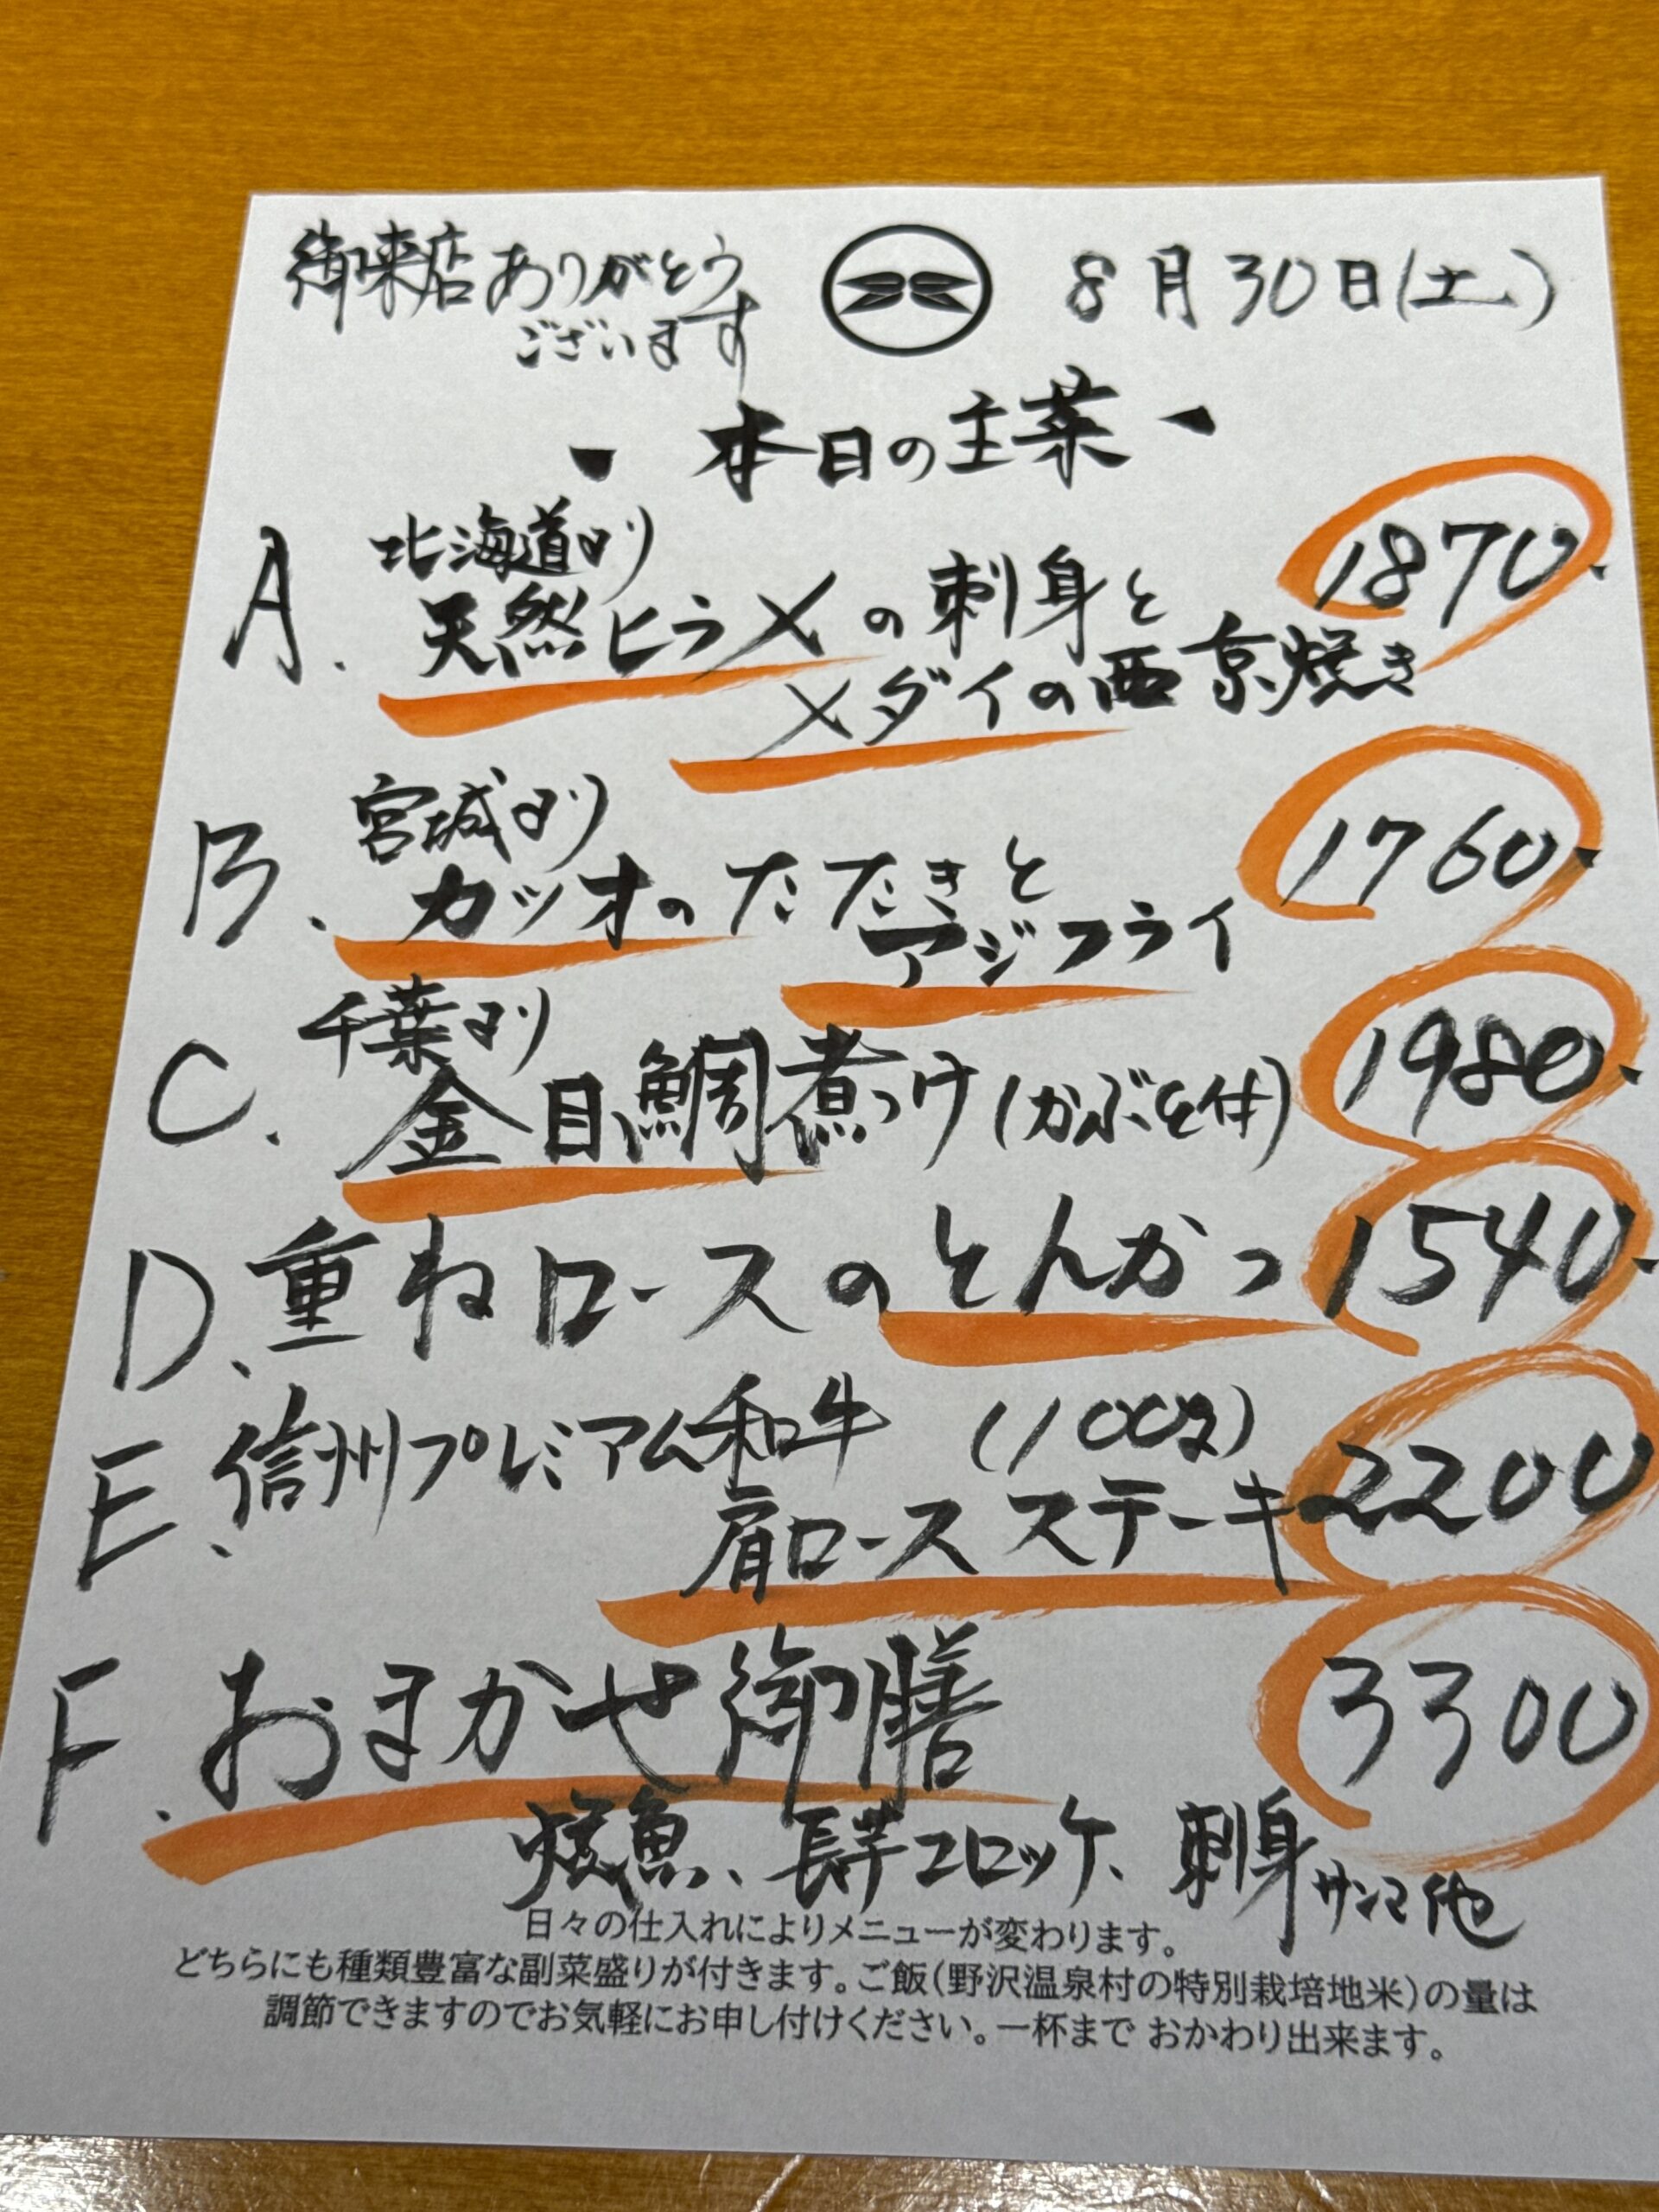 御来店ありがとう
ございます
8月30日(土)
- 本日の主菜 -
A. 北海道より
天然ヒラメの刺身と
メダイの西京焼き
1870.
B. 宮城より
カツオのたたきと
アジフライ
1760.
C. 千葉より
金目鯛煮つけ(かぶと付)
1980.
D. 重ねロースのとんかつ 1540.
E. 信州プレミアム和牛 (100g)
肩ロースステーキ 2200
F. おまかせ御膳 3300
焼魚、長芋コロッケ、刺身サンマ他
日々の仕入れによりメニューが変わります。
どちらにも種類豊富な副菜盛りが付きます。ご飯(野沢温泉村の特別栽培地米)の量は
調節できますのでお気軽にお申し付けください。一杯まで おかわり出来ます。